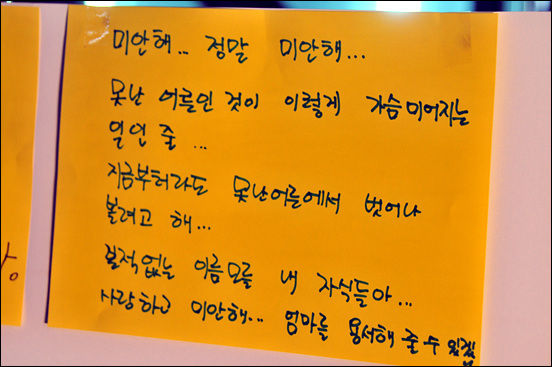 미안해... 정말 미안해...
못난 어른인 것이 이렇게 가슴 미어지는
일인 줄 ...
지금부터라도 못난어른에서 벗어나
볼려고 해...
본적없는 이름모를 내 자식들아...
사랑하고 미안해... 엄마를 용서해 줄 수 있겠